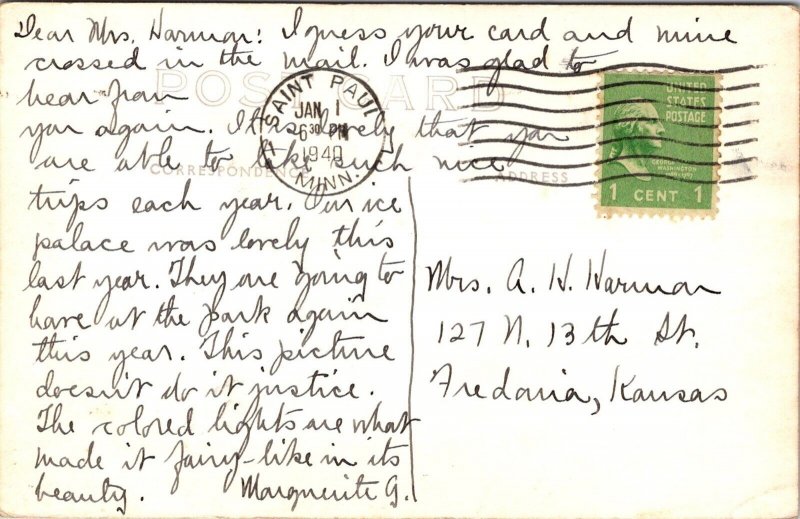 Dear Mrs. Harman: I guess your card and mine
crossed in the mail. I was glad to
hear from
POST CARD
you again. It is lovely that you
are able to take such nice
CORRESPONDENCE
ADDRESS
trips each year. Our ice
palace was lovely this
last year. They are going to
have at the park again
this year. This picture
doesn't do it justice.
The colored lights are what
made it fairy-like in its
beauty. Marguerite G.
SAINT PAUL
JAN 1
630 PM
1940
MINN.
UNITED
STATES
POSTAGE
GEORGE
WASHINGTON
1 CENT 1
Mrs. A. H. Harman
127 N. 13th St.
Fredonia, Kansas